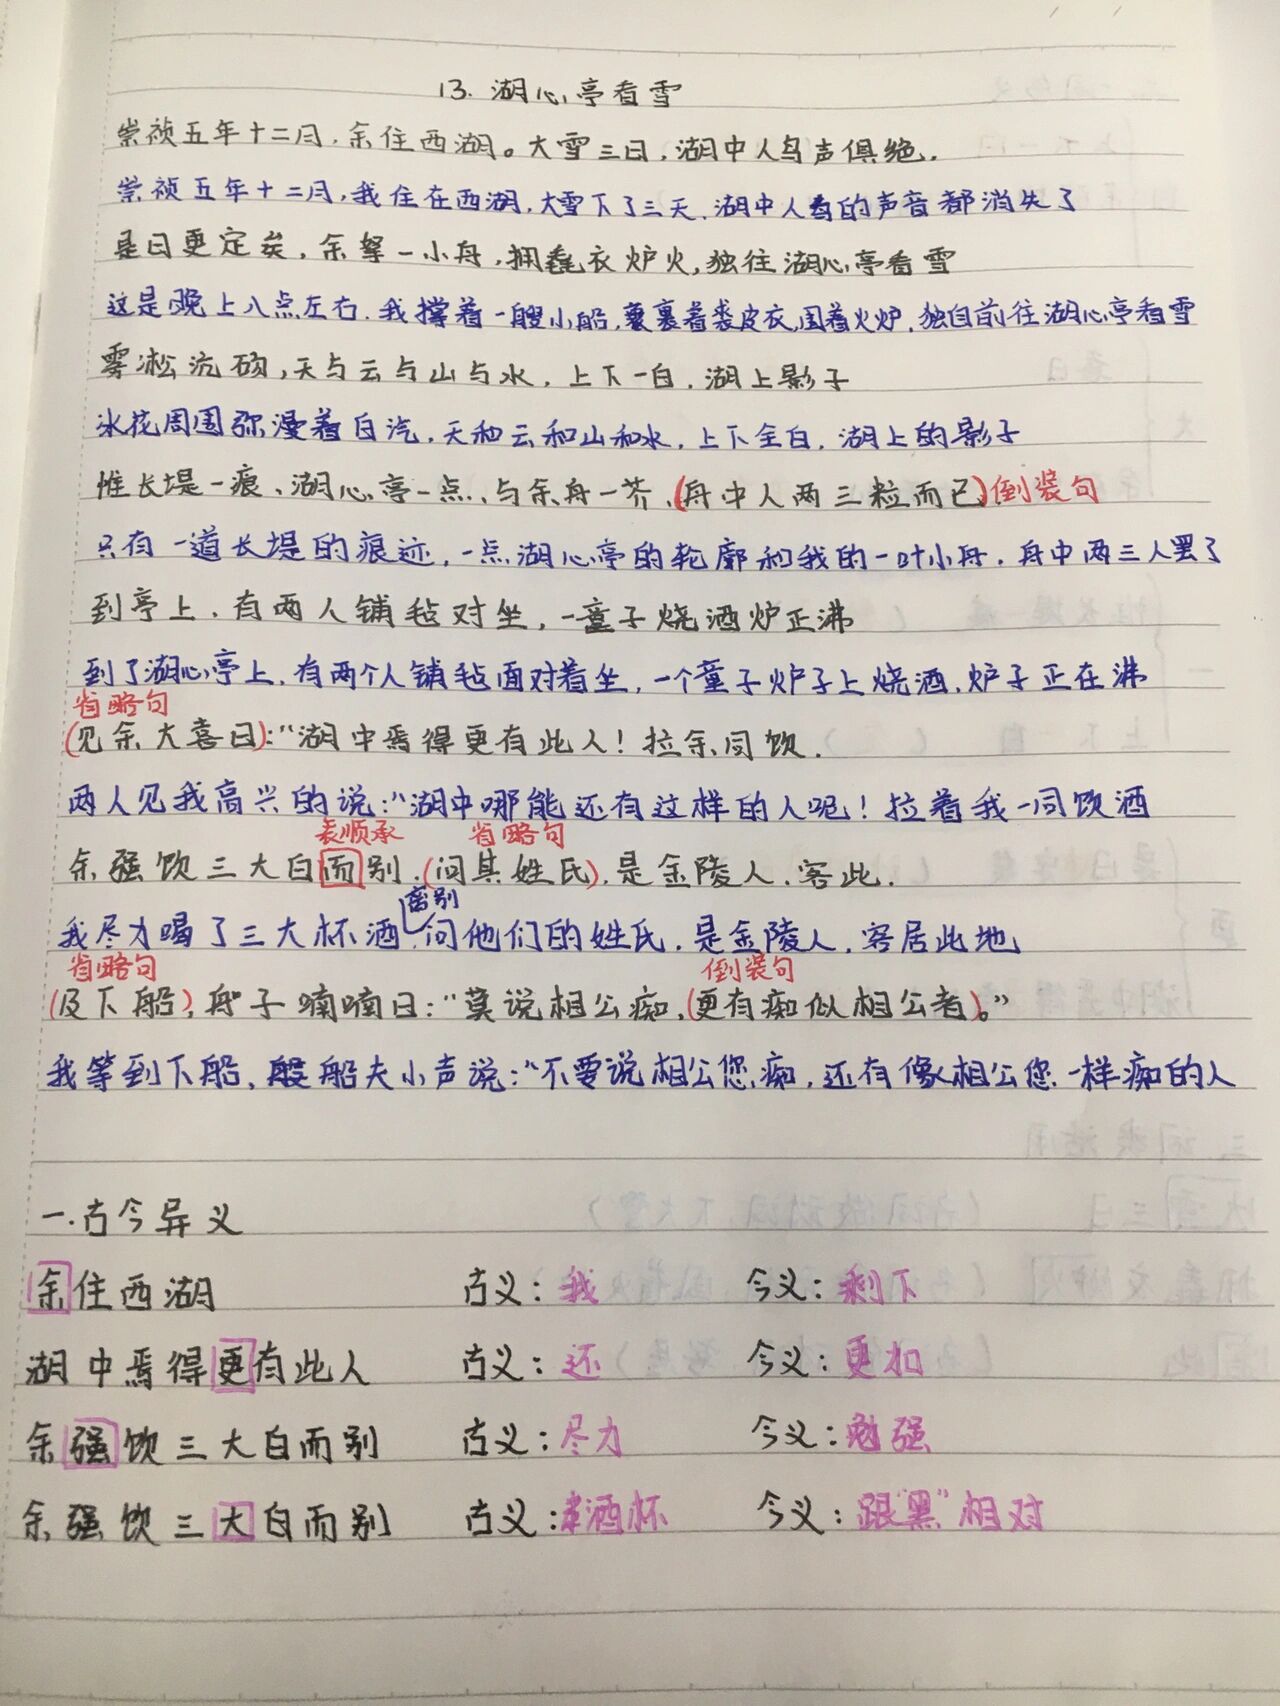 13. 湖心亭看雪
崇祯五年十二月,余住西湖。大雪三日,湖中人鸟声俱绝.
崇祯五年十二月,我住在西湖,大雪下了三天.湖中人鸟的声音都消失了
是日更定矣,余拏一小舟,拥毳衣炉火,独往湖心亭看雪
这是晚上八点左右.我撑着一艘小船,裹着裘皮衣,围着火炉.独自前往湖心亭看雪
雾凇沆砀,天与云与山与水,上下一白,湖上影子
冰花周围弥漫着白汽,天和云和山和水,上下全白,湖上的影子
惟长堤一痕、湖心亭一点、与余舟一芥、(舟中人两三粒而已)倒装句
只有一道长堤的痕迹,一点湖心亭的轮廓和我的一叶小舟,舟中两三人罢了
到亭上,有两人铺毡对坐,一童子烧酒炉正沸
到了湖心亭上,有两个人铺毡面对着坐,一个童子炉子上烧酒,炉子正在沸
省略句
(见余大喜曰):"湖中焉得更有此人!拉余同饮.
两人见我高兴的说:"湖中哪能还有这样的人呢!拉着我一同饮酒
表顺承 省略句
余强饮三大白而别.(问其姓氏),是金陵人,客此.
离别
我尽力喝了三大杯酒.问他们的姓氏,是金陵人,客居此地
省略句 倒装句
(及下船),舟子喃喃曰:"莫说相公痴,(更有痴似相公者)。"
我等到下船,船夫小声说:"不要说相公您痴,还有像相公您一样痴的人
一.古今异义
余住西湖 古义:我 今义:剩下
湖中焉得更有此人 古义:还 今义:更加
余强饮三大白而别 古义:尽力 今义:勉强
余强饮三大白而别 古义:酒杯 今义:跟"黑"相对